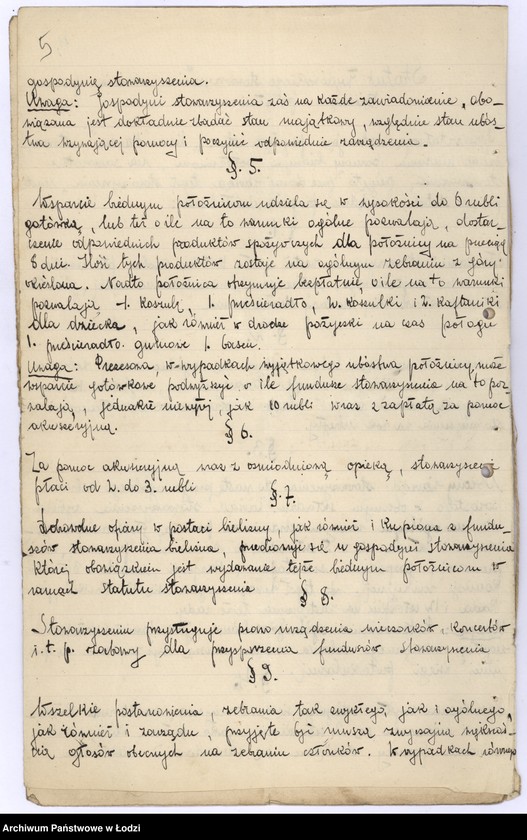 5
gospodynię stowarzyszenia.
Uwaga: Gospodyni stowarzyszenia zaś na każde zawiadomienie, obo-
wiązana jest dokładnie zbadać stan majątkowy, względnie stan ubós-
twa wzywającej pomocy i poczynić odpowiednie zarządzenia.
§. 5.
Wsparcie biednym położnicom udziela się w wysokości do 6 rubli
gotówką, lub też o ile na to warunki ogólne pozwalają, dostar-
czenie odpowiednich produktów spożywczych dla położnicy na przeciąg
8 dni. Ilość tych produktów zostaje na ogólnym zebraniu z góry
określona. Nadto położnica otrzymuje bezpłatnie, o ile na to warunki
pozwalają 1. koszulę, 1. prześcieradło, 2. koszulki i 2. kaftaniki
dla dziecka, jak również w drodze pożyczki na czas połogu
1. prześcieradło gumowe 1. basen.
Uwaga: Prezesowa, w wypadkach wyjątkowego ubóstwa położnicy, może
wsparcie gotówkowe podwyższyć, o ile fundusze stowarzyszenia na to poz-
walają, jednakże niewyżej, jak 10 rubli wraz z zapłatą za pomoc
akuszeryjną.
§ 6.
Za pomoc akuszeryjną wraz z ośmiodniową opieką, stowarzyszenie
płaci od 2. do 3. rubli
§. 7.
Dobrowolne ofiary w postaci bielizny, jak również i kupiona z fundu-
szów stowarzyszenia bielizna, przechowuje się u gospodyni stowarzyszenia
której obowiązkiem jest wydawanie tejże biednym położnicom w
ramach statutu stowarzyszenia
§ 8.
Stowarzyszeniu przysługuje prawo urządzenia wieczorków, koncertów
i. t. p. zabawy dla przysporzenia funduszów stowarzyszenia
§ 9.
Wszelkie postanowienia, zebrania tak zwykłego, jak i ogólnego,
jak również i zarządu, przyjęte być muszą zwyczajną większoś-
cią głosów obecnych na zebraniu członków. W wypadkach równego
Archiwum Państwowe w Łodzi